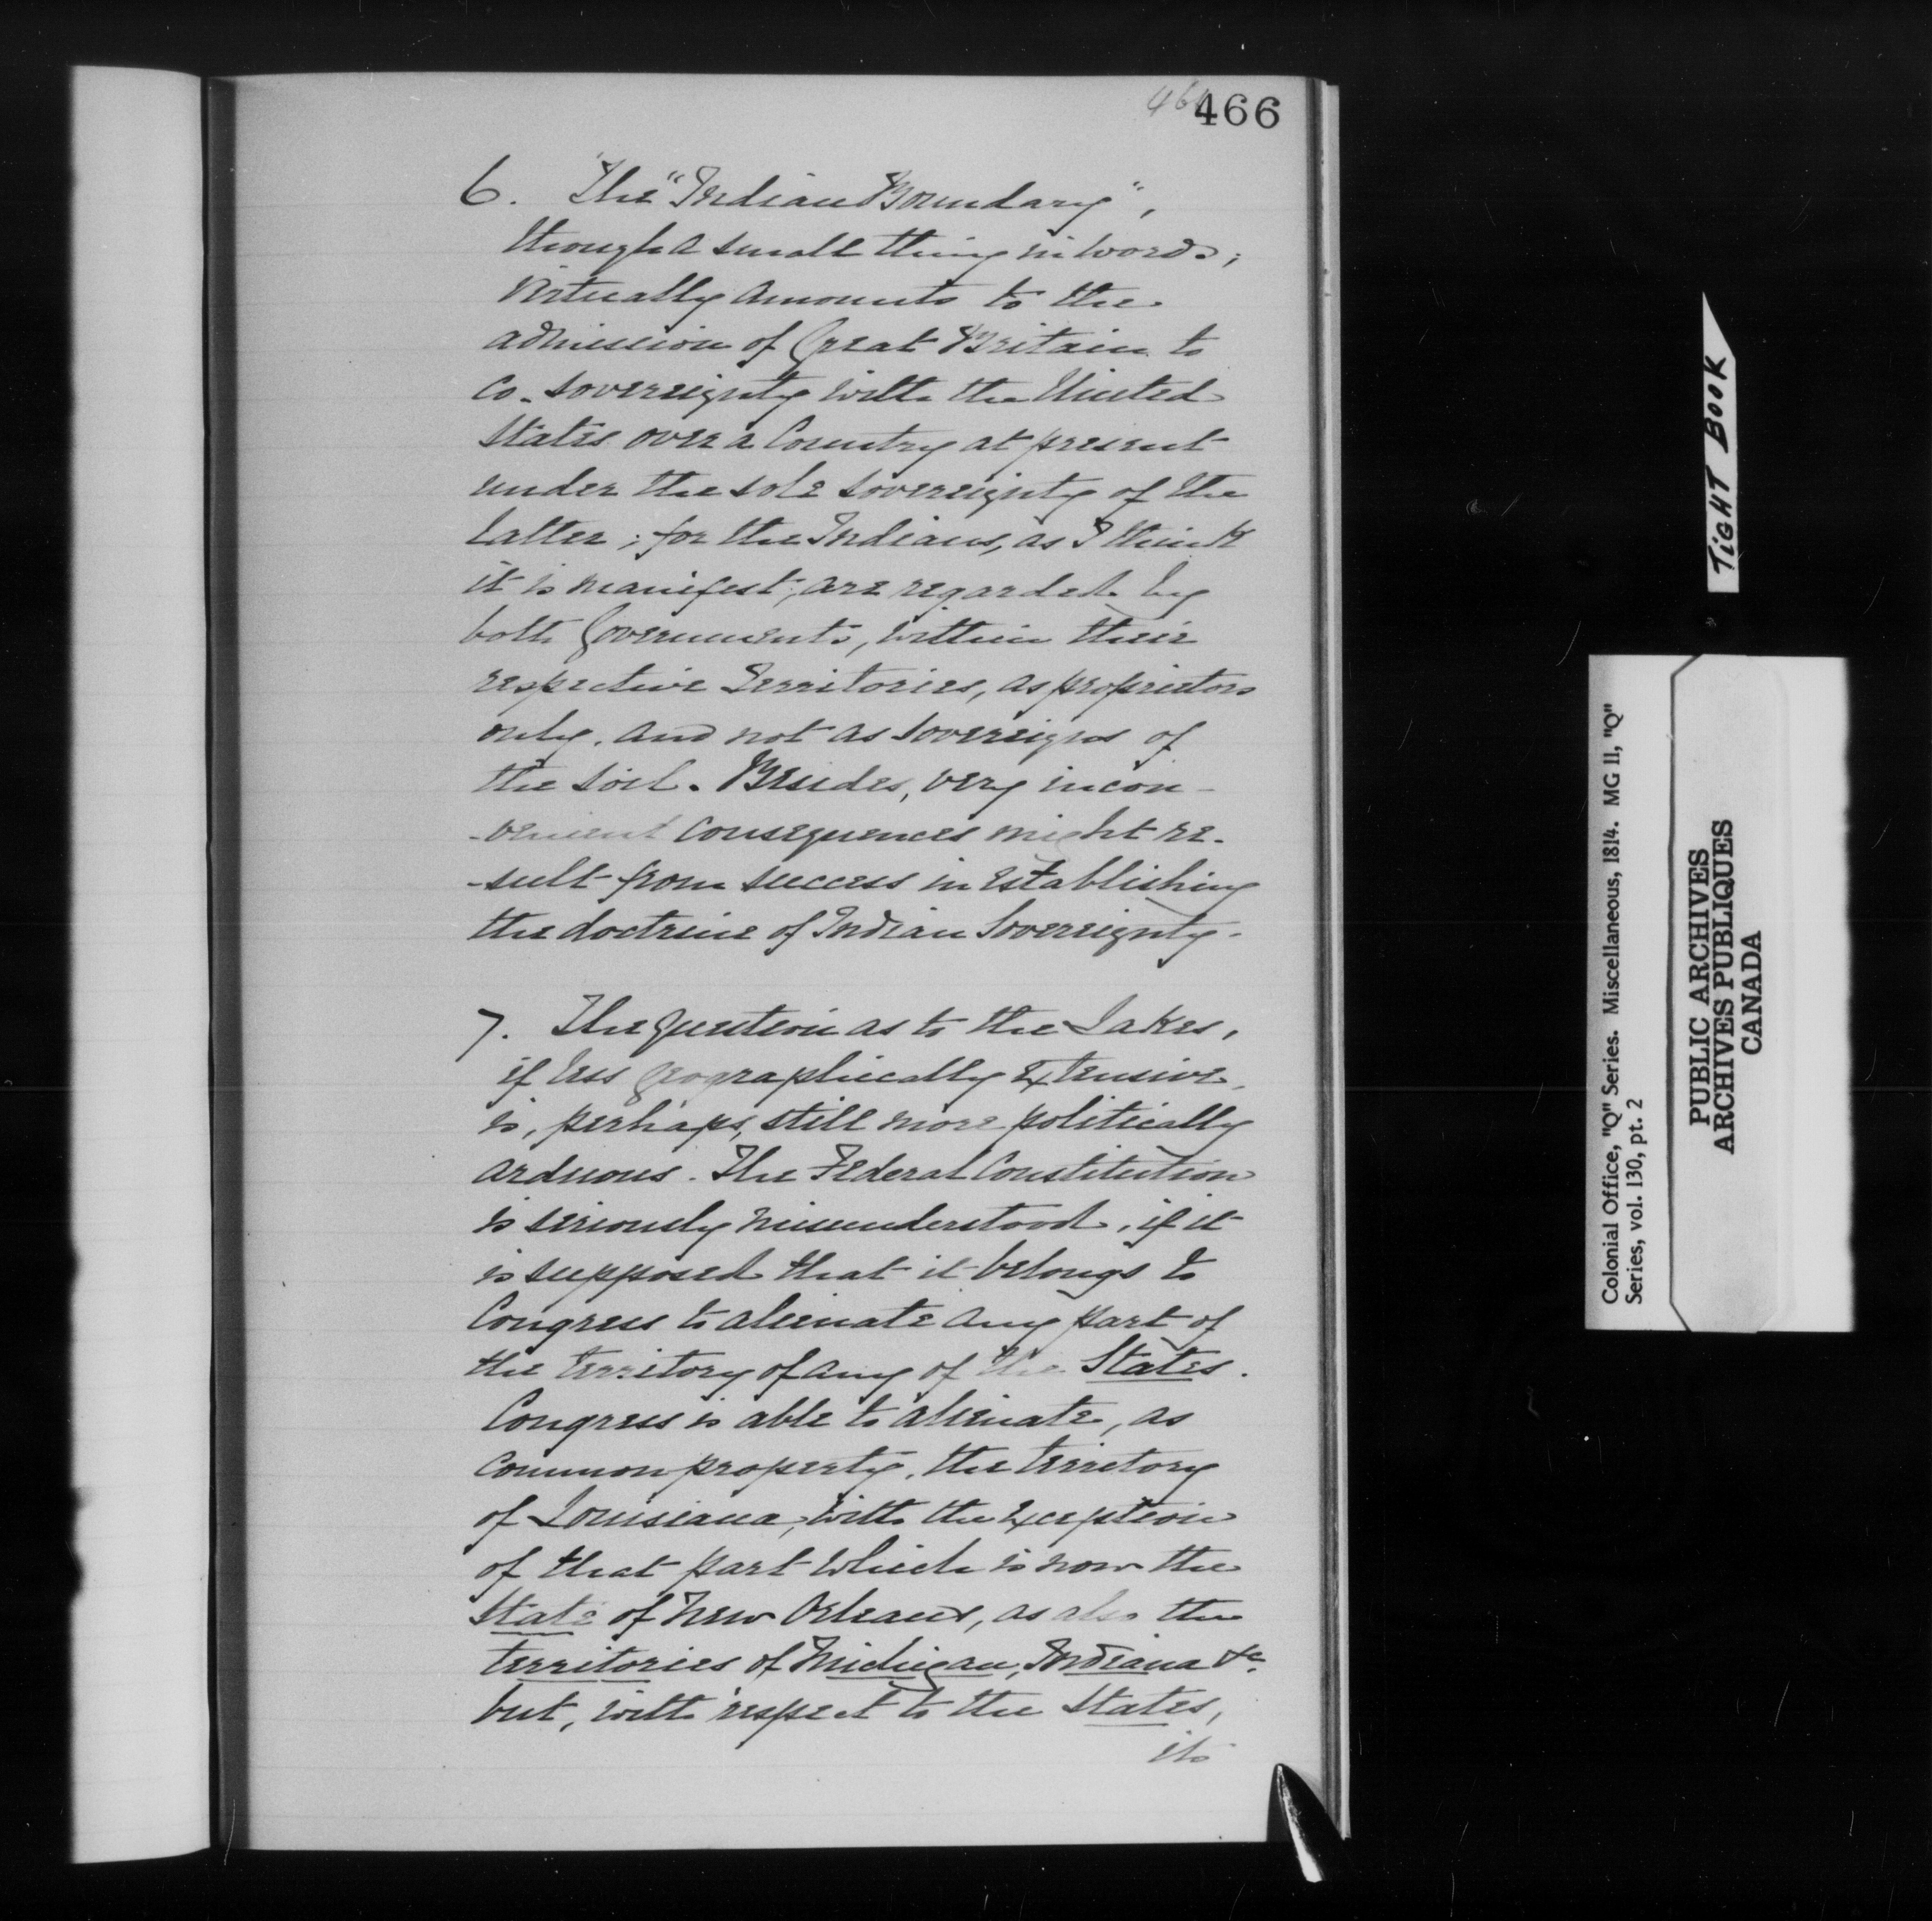 466
6. The "Indian Boundary",
though a small thing in words,
virtually amounts to the
admission of Great Britain to
co-sovereignty with the United
States over a Country at present
under the sole sovereignty of the
latter; for the Indians, as I think
it is manifest, are regarded by
both Governments, within their
respective Territories, as proprietors
only, and not as sovereigns of
the soil. Besides, very incon-
-venient consequences might re-
-sult from success in establishing
the doctrine of Indian Sovereignty.
7. The question as to the Lakes,
if less geographically extensive,
is, perhaps, still more politically
arduous. The Federal Constitution
is seriously misunderstood, if it
is supposed that it belongs to
Congress to alienate any part of
the territory of any of the States.
Congress is able to alienate, as
common property, the territory
of Louisiana, with the exception
of that part which is now the
State of New Orleans, as also the
territories of Michigan, Indiana &c.
but, with respect to the States,
its
TIGHT BOOK
Colonial Office, "Q" Series. Miscellaneous, 1814. MG 11, "Q"
Series, vol. 130, pt. 2
PUBLIC ARCHIVES
ARCHIVES PUBLIQUES
CANADA